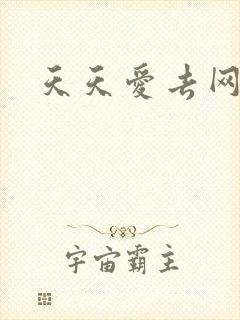 天天爱去网
宇宙霸主